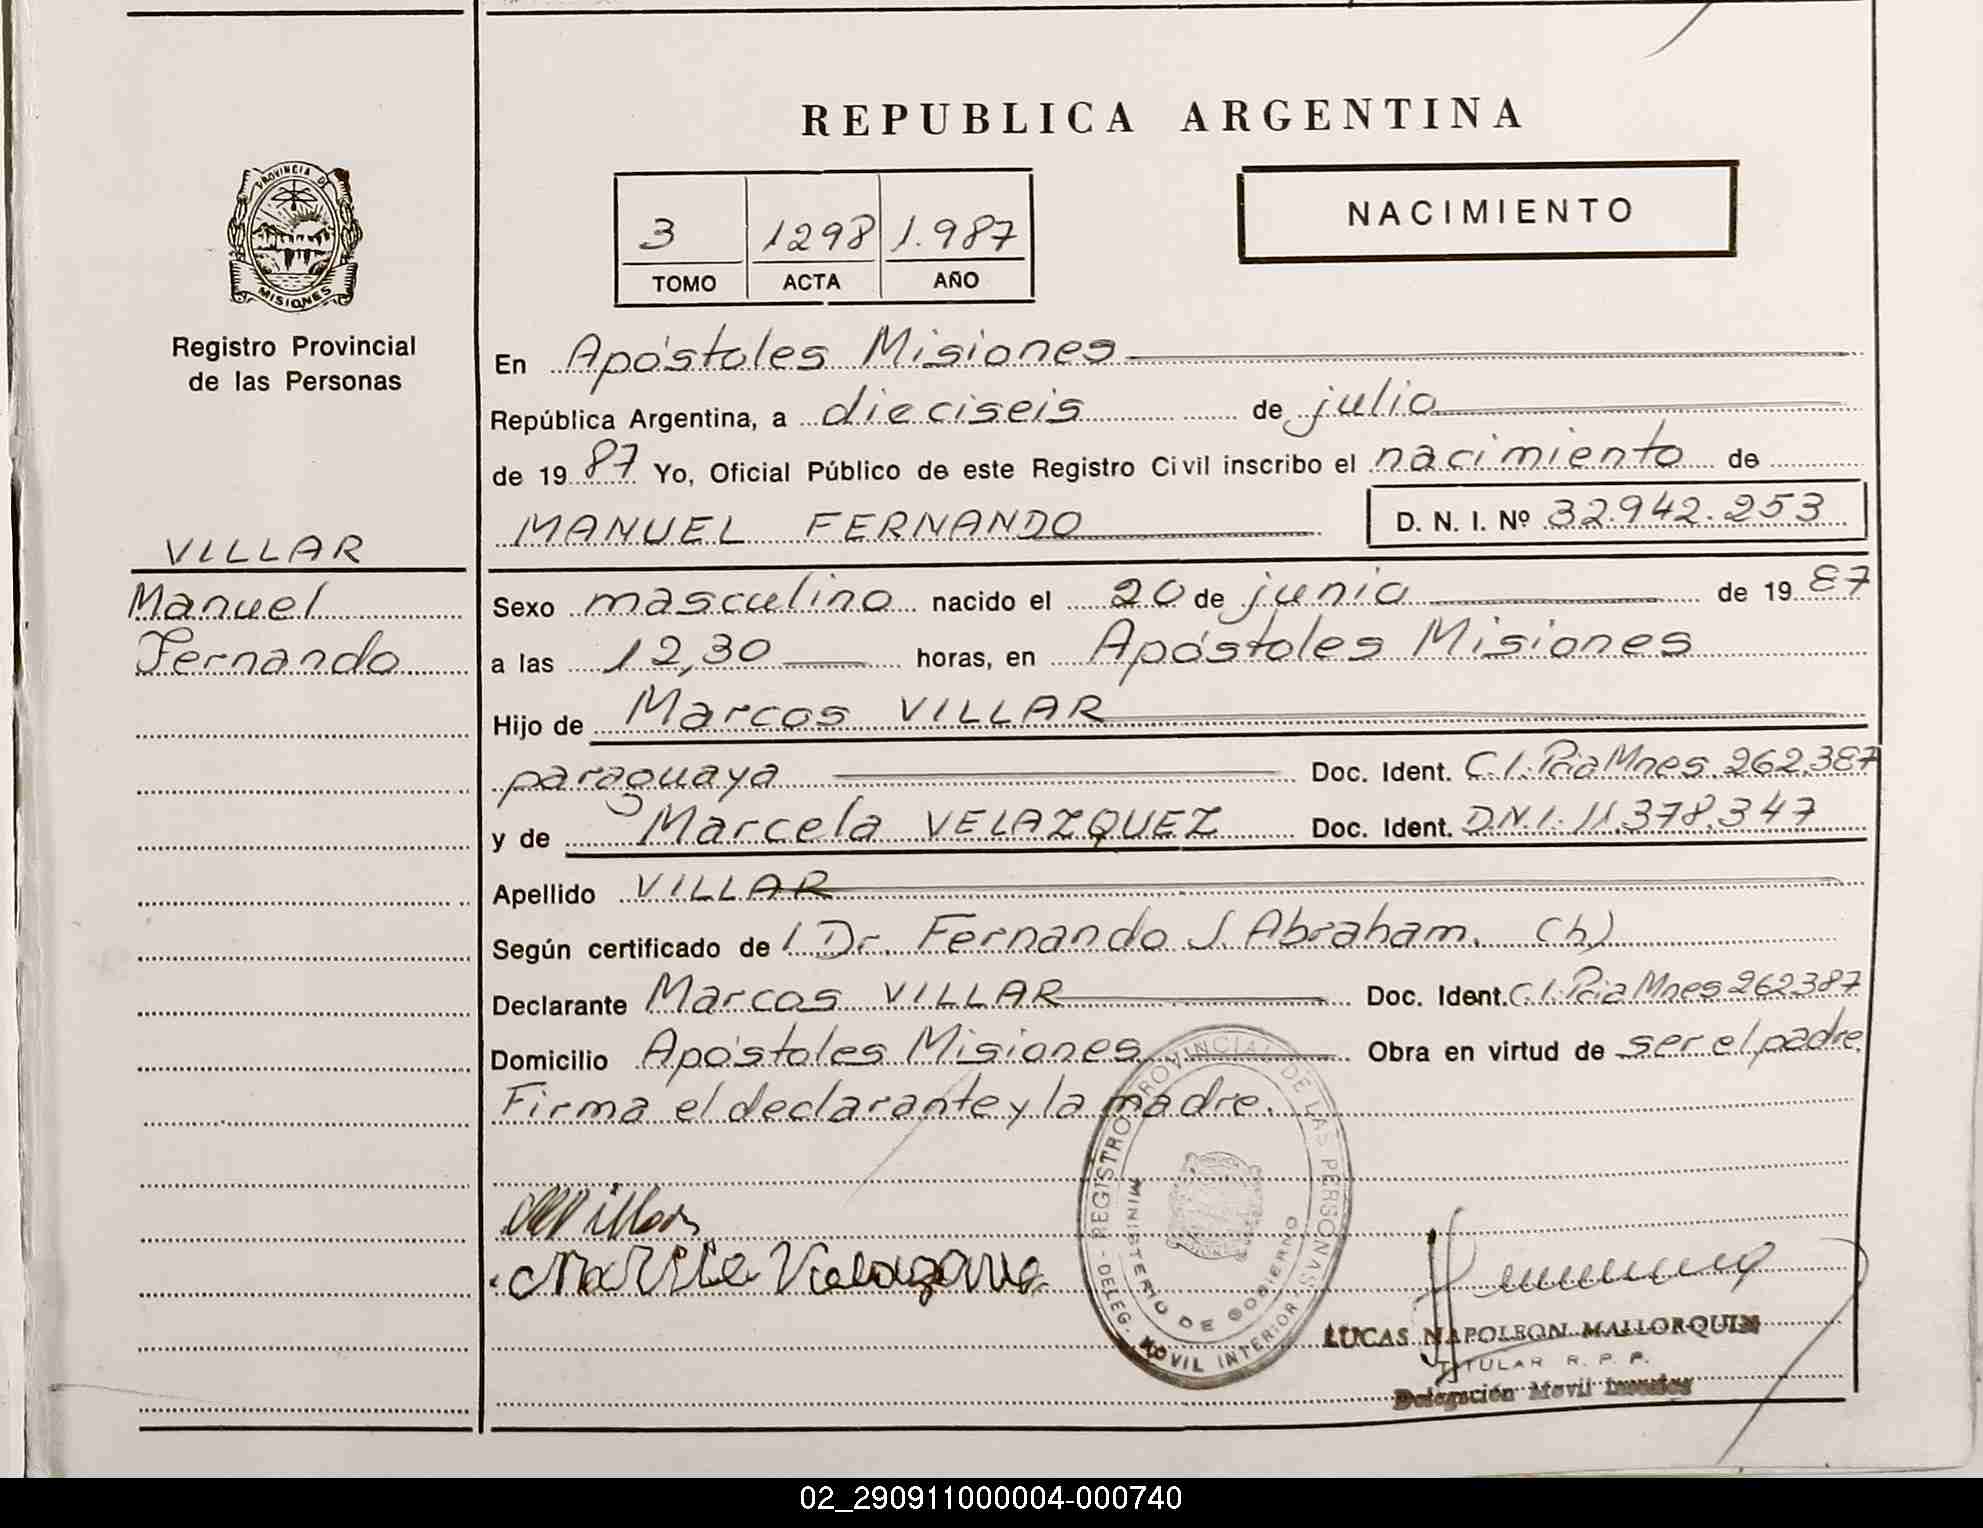 REPUBLICA ARGENTINA
PROVINCIA D
MISIONES
3 1298 1.987
TOMO ACTA AÑO
NACIMIENTO
Registro Provincial
de las Personas
VILLAR
Manuel
Fernando
En Apóstoles Misiones
República Argentina, a dieciseis de julio
de 1987 Yo, Oficial Público de este Registro Civil inscribo el nacimiento de
MANUEL FERNANDO D. N. I. Nº 32.942.253
Sexo masculino nacido el 20 de junio de 1987
a las 12,30 horas, en Apóstoles Misiones
Hijo de Marcos VILLAR
paraguaya Doc. Ident. C.I. Pcia Mnes. 262.387
y de Marcela VELAZQUEZ Doc. Ident. D.N.I. 11.378.347
Apellido VILLAR
Según certificado de Dr. Fernando J. Abraham. (h)
Declarante Marcos VILLAR Doc. Ident. C.I. Pcia Mnes 262387
Domicilio Apóstoles Misiones Obra en virtud de ser el padre.
Firma el declarante y la madre.
REGISTRO PROVINCIAL DE LAS PERSONAS - DELEG. MOVIL INTERIOR -
MINISTERIO DE GOBIERNO
LUCAS NAPOLEON MALLORQUIN
TITULAR R. P. P.
Delegación Movil
02_290911000004-000740